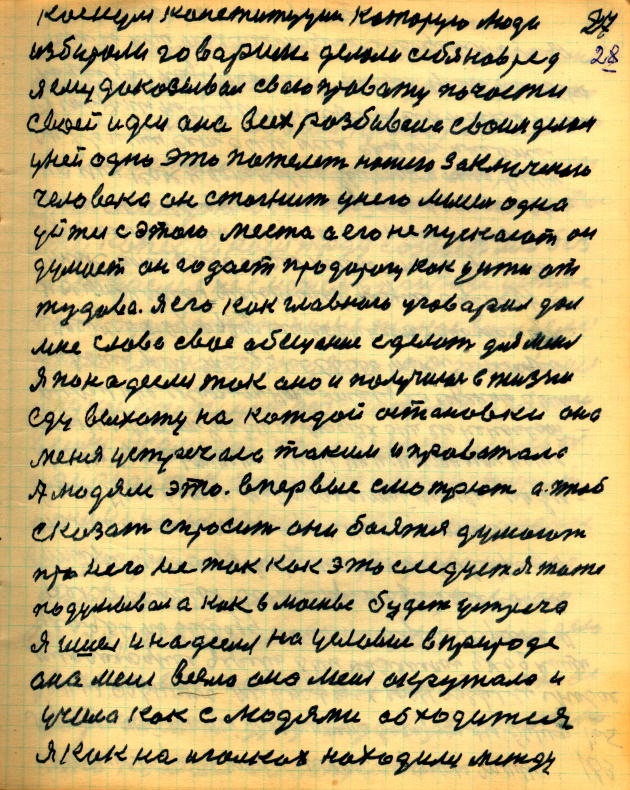 27
28
кокнул конституции которую люди
избирали говарили делали себя навред
я ему доказывал свою правату почасти
своей идеи она всех розбивала своим делом
у ней одно это пожелет нашего заключеного
человека он стогнит у него мысля одна
уйти с этого места а его не пускают он
думает он годает про дорогу как уйти от
тудова. я его как главного уговарил дал
мне слова свое обещение сделат для меня
я понадеелся так оно и получилос в жизни
еду выхожу на каждой остановки она
меня устречала таким и проважала
А людям это. впервые смотрют а. чтоб
сказат спросит они боятся думают
про него не так как это следует я тоже
подумывал а как в москве будет устреча
я ишел и надеелся на условие в природе
она меня вела она меня окружала и
учила как с людями обходится
я как на иголках находился между